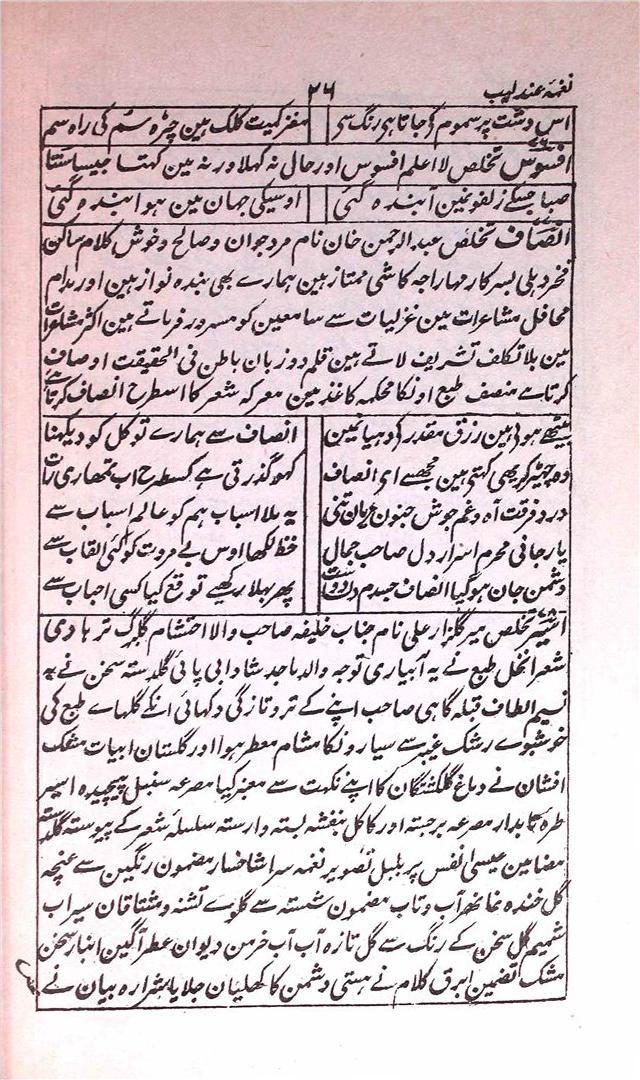 نغمۂ عندلیب
۲۶
اس دشت پر سموم کو جاتا ہی رنگ سی مغز کمیت کلک ہین چڑہ سُم کی راہ سم
افسوس تخلص لا اعلم افسوس اور حال نہ کہلا ورنہ مین کہتا جیسا سنتا
صبا جسکے زلفونمین آ بندہ گئی اوسیکی جہان مین ہوا بندہ گئی
انصاف تخلص عبد الرحمن خان نام مرد جوان و صالح و خوش کلام ساکن
فخر دہلی بسرکار مہاراجہ کاشی ممتاز ہین ہمارے بھی بندہ نواز ہین اور مدام
محافل مشاعرات مین غزلیات سے سامعین کو مسرور فرماتے ہین اکثر مشاعرات
مین بلا تکلف تشریف لاتے ہین قلم دو زبان باطن فی الحقیقت اوصاف
کرتا ہے منصف طبع اونکا محکمہ کاغذ مین معرکہ شعر کا اسطرح انصاف کرتا ہے
بیٹھے ہوئی ہین رزق مقدر کو دہیانمین انصاف سے ہمارے توکل کو دیکہنا
وہ چھیڑ کر بھی کہتی ہین مجھسے ای انصاف کہو گذرتی ہے کسطرح اب تمھاری رات
درد فرقت آہ و غم جوش جنون عریان تنی یہ ملا اسباب ہم کو عالم اسباب سے
یار جانی محرم اسرار دل صاحب جمال خط لکھا اوس بے مروت کو کئی القاب سے
دشمن جان ہو گیا انصاف جسدم دل دوست پھر بہلا رکھیے توقع کیا کسی احباب سے
اسیر تخلص میر گلزار علی نام جناب خلیفہ صاحب والا احتشام گلبرگ تر ہادی
شعرا نخل طبع نے یہ آبیاری توجہ والد ماجد شادابی پائی گلدستہ سخن نے بہ
نسیم الطاف قبلہ گاہی صاحب اپنے کے تر و تازگی دکہائی انکے گلہاے طبع کی
خوشبوے رشک عنبر سے سیارونکا مشام معطر ہوا اور گلستان ابیات مشک
افشان نے دماغ گلگشتگان کا اپنے نکہت سے معنبر کیا مصرعہ سنبل پیچیدہ اسیر
طرہ تابدار مصرعہ برجستہ اور کاکل بنفشہ بستہ وارستہ سلسلہ شعر کے پیوستہ گلدستہ
مضامین عیسی انفس پر بلبل تصویر نغمہ سرا شاخسار مضمون رنگین سے غنچہ
گل خندہ نما آب و تاب مضمون شستہ سے گلوے تشنہ و مشتاقان سیراب
شمیم گل سخن کے رنگ سے گل تازہ آب آب خرمن دیوان عطر آگین انبار سخن
مشک تضمین ابرق کلام نے ہستی دشمن کا کھلیان جلایا شرارہ بیان نے